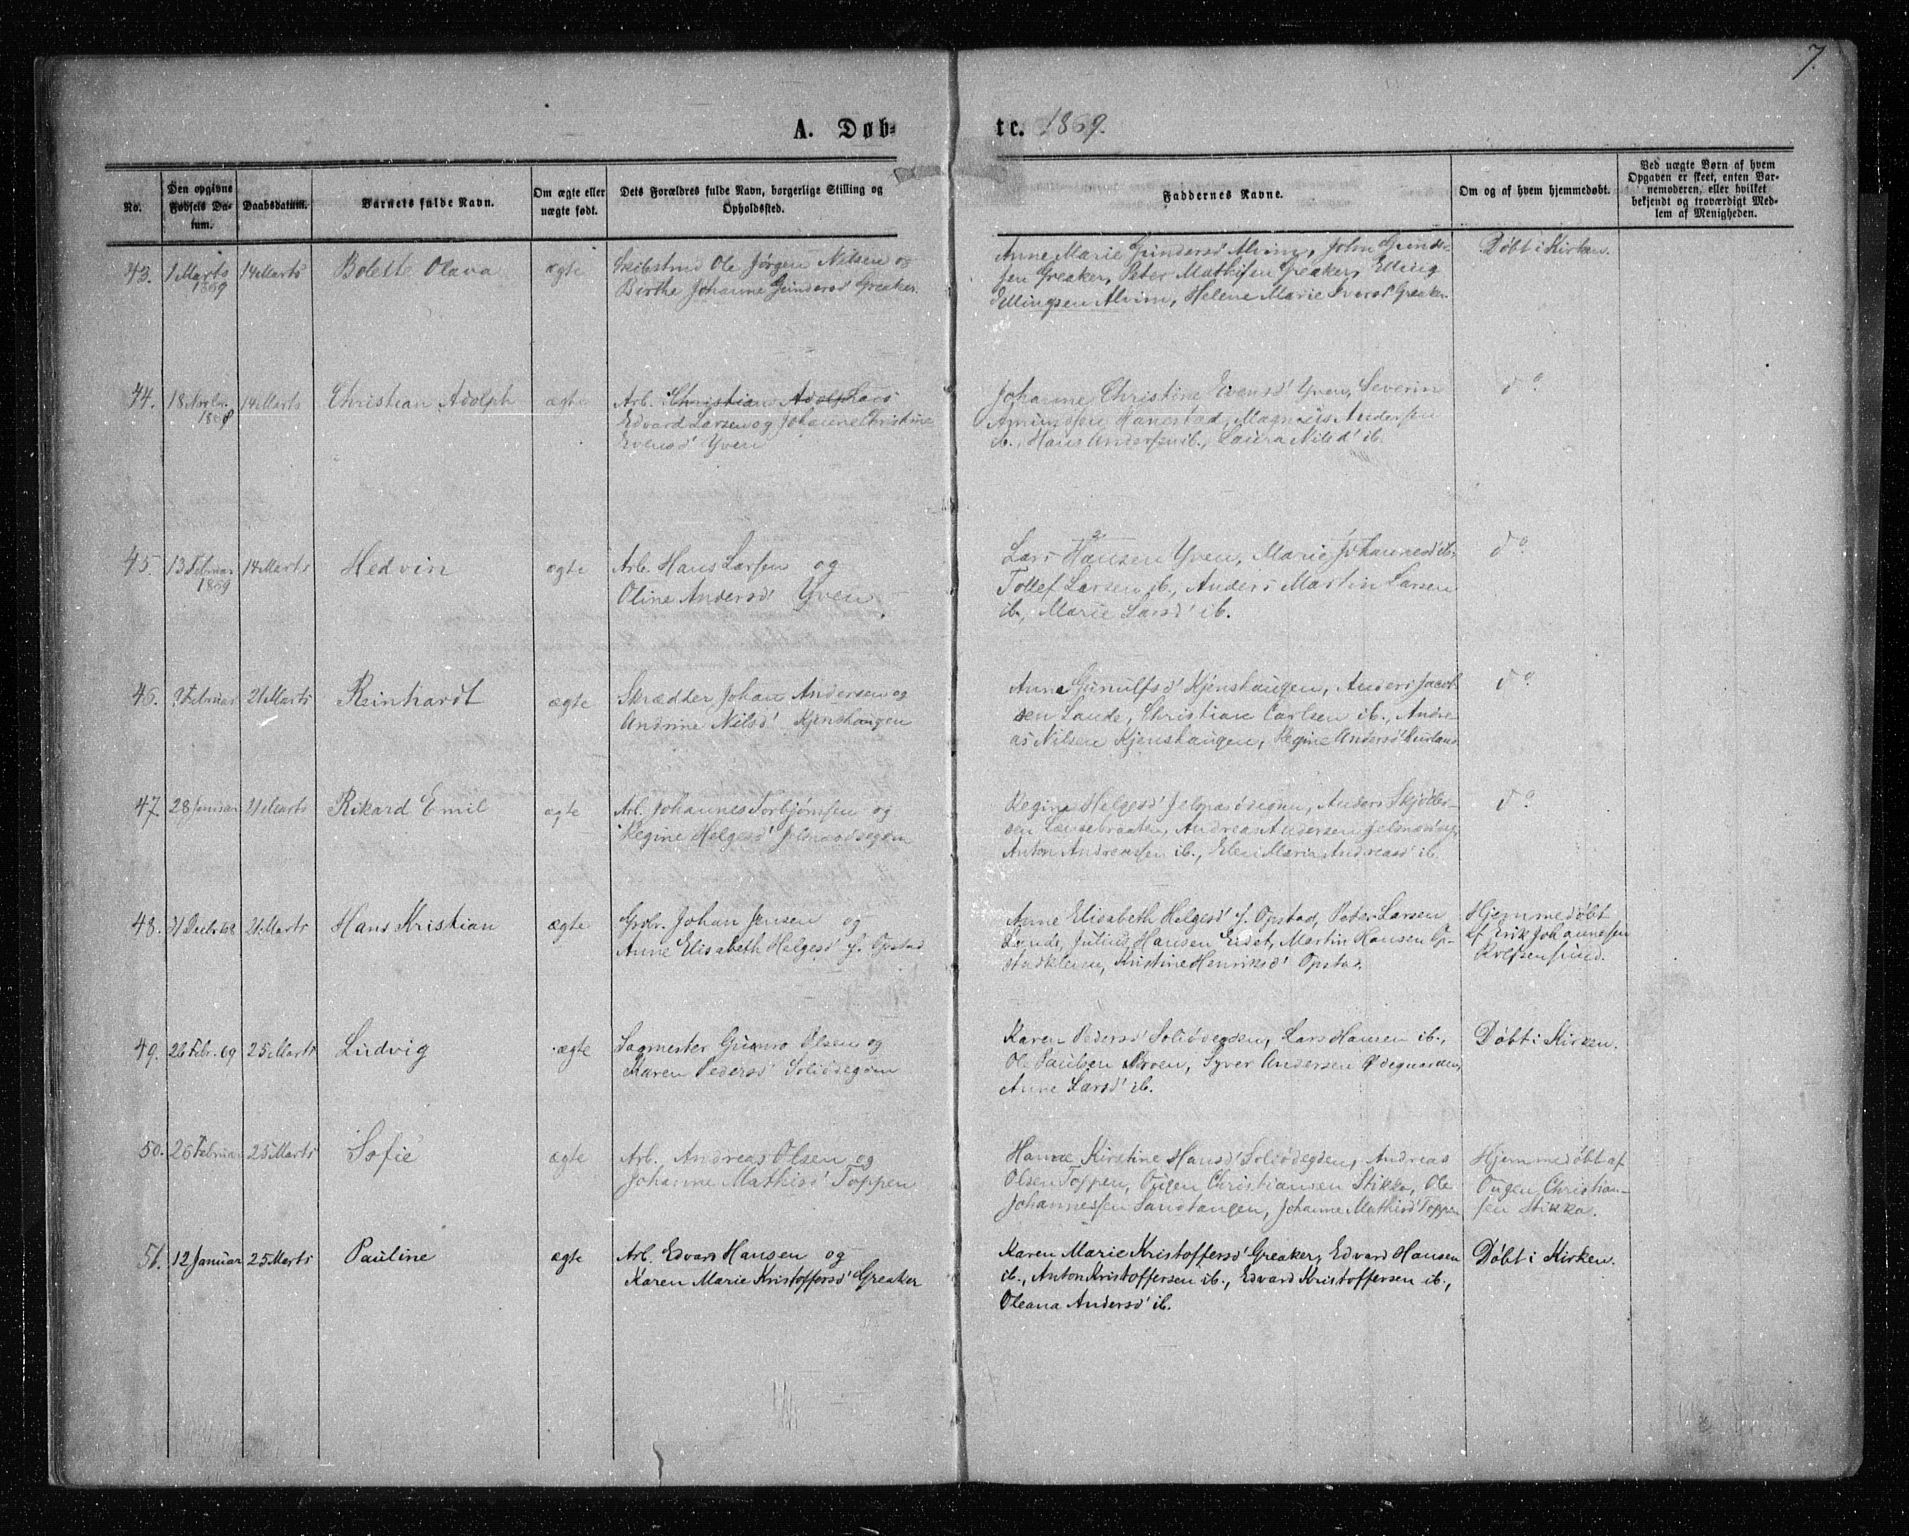 7.
A. Døb-
te. 1869.
No.
Den opgivne Fødsels Datum.
Daabsdatum.
Barnets fulde Navn.
Om ægte eller uægte født.
Dets Forældres fulde Navn, borgerlige Stilling og Opholdssted.
Faddernes Navne.
Om og af hvem hjemmedøbt.
Ved uægte Børn af hvem Opgaven er skeet, enten Barnemoderen, eller hvilket bekjendt og troværdigt Medlem af Menigheden.
43. 1 Marts 1869 14 Marts Bolette Olava ægte
Ole Jørgen Nilsen og
Birthe Johanne Gundersd Greaker.
Anne Marie Gundersd Alvim, John Gunder-
sen Greaker, Peter Mathisen Greaker, Elling
Ellingsen Alvim, Helene Marie Iversd Greaker
Døbt i Kirken.
44. 18 Novbr. 1868 14 Marts Christian Adolph ægte
Arb. Christian Adolph Lars
Edvard Larsen og Johanne Christine
Evensd' Yven
Johanne Christine Evensd' Yven, Severin
Amundsen Hanestad, Magnus Andersen
ib., Hans Andersen ib., Laura Nilsd' ib.
do
45. 13 Februar 1869 14 Marts Hedvin ægte
Arb. Hans Larsen og
Oline Andersd' Yven
Lars Hansen Yven, Marie Johannesd ib,
Tollef Larsen ib, Anders Martin Larsen
ib, Marie Larsd' ib.
do
46. 9 Februar 21 Marts Reinhardt ægte
Skrædder Johan Andersen og
Andrine Nilsd' Kjenshaugen
Anne Gunulfsd' Kjenshaugen, Anders Jacob-
sen Lande, Christian Carlsen ib., Andre-
as Nilsen Kjenshaugen, Regine Andersd
do
47. 28 Januar 21 Marts Rikard Emil ægte
Arb. Johannes Torbjørnsen og
Regine Helgesd' Jelsnæsødegden
Regine Helgesd' Jelsnæsødegden, Anders
sen Lansebraaten, Andreas Andersen
Anton Andreassen ib., Elen Maria Andreasd' ib.
do
48. 21 Decb 68 21 Marts Hans Kristian ægte
Grdr. Johan Jensen og
Anne Elisabeth Helgesd' f. Opstad
Anne Elisabeth Helgesd' f. Opstad, Peter Larsen
Lande, Julius Hansen Eidet, Martin Hansen Op-
stadkleiven, Kristine Henriksd' Opstad.
Hjemmedøbt
af Erik Johannesen
Rolfsensund.
49. 26 Febr. 69 25 Marts Ludvig ægte
Sagmester Gunro Olsen og
Karen Pedersd' Soliødegden
Karen Pedersd' Soliødegden, Lars Hansen ib.,
Ole Paulsen Moen, Syver Andersen Ødegaarden,
Anne Larsd' ib.
Døbt i Kirken.
50. 26 Februar 25 Marts Sofie ægte
Arb. Andreas Olsen og
Johanne Mathisd' Toppen
Hanne Kirstine Hansd' Soliødegden, Andreas
Olsen Toppen, Ougen Christiansen Stikka, Ole
Johannessen Sandtangen, Johanne Mathisd' Toppen
Hjemmedøbt af
Ougen Christian-
sen Stikka.
51. 12 Januar 25 Marts Pauline ægte
Arb. Edvard Hansen og
Karen Marie Kristoffersd' Greaker
Karen Marie Kristoffersd' Greaker, Edvard Hansen
ib., Anton Kristoffersen ib., Edvard Kristoffersen ib.,
Oleana Andersd' ib.
Døbt i Kirken.